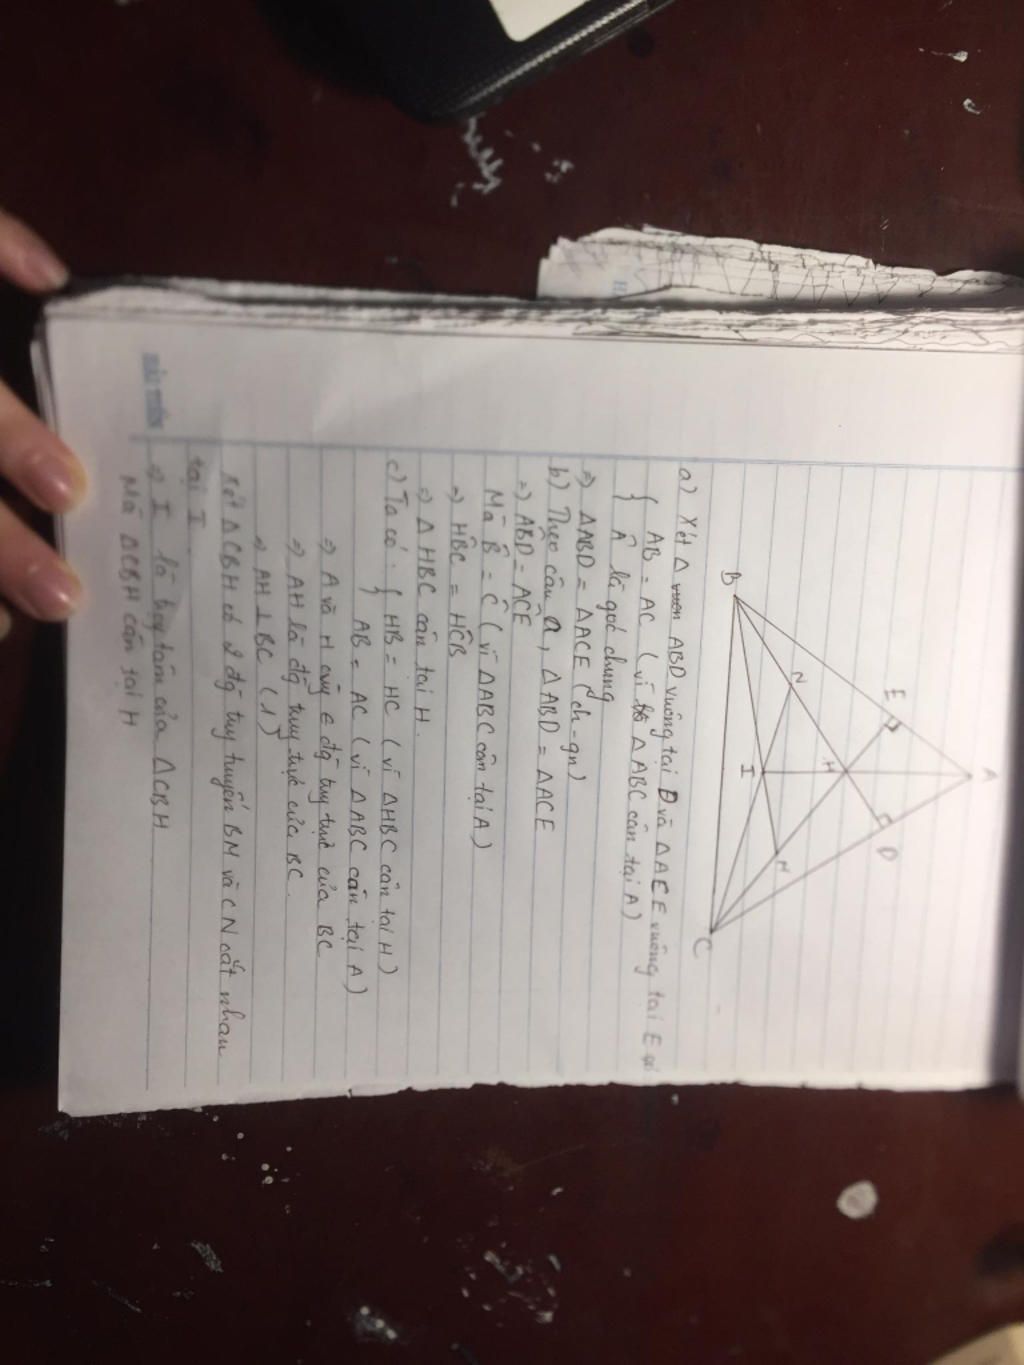 A
E
D
H
N
M
I
B
C
a) Xét Δ ABD vuông tại D và Δ AEE vuông tại E có
{ AB = AC ( vì Δ ABC cân tại A)
Â là góc chung
=> ΔABD = ΔACE ( ch - gn)
b) Theo câu a, ΔABD = ΔACE
=> ABD̂ = ACÊ
Mà B̂ = Ĉ ( vì ΔABC cân tại A)
=> HB̂C = HĈB
=> Δ HBC cân tại H.
c) Ta có : { HB = HC ( vì ΔHBC cân tại H)
AB = AC ( vì ΔABC cân tại A)
=> A và H cùng ∈ đg tuy trực của BC
=> AH là đg tuy trực của BC.
=> AH ⊥ BC (1)
Xét ΔCBH có 2 đg tuy tuyến BM và CN cắt nhau
tại I.
=> I là tuy tâm của ΔCBH
Mà ΔCBH cân tại H
HẢI TIẾN